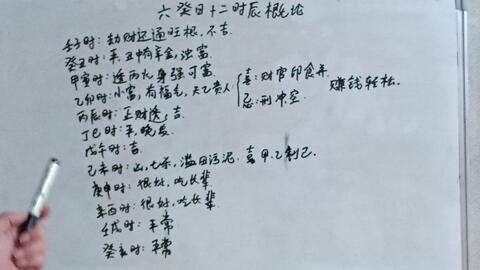 六癸日十二时辰概论
壬子时：劫财还通旺根，不吉。
癸丑时：平，丑中有辛金，浊富
甲寅时：逢丙火身强可富
乙卯时：小富，有福气，天乙贵人
喜：财官印食并
忌：刑冲空
赚钱轻松。
丙辰时：正财透，吉
丁巳时：平，晚发
戊午时：吉
己未时：凶，七杀，滥田污泥。喜甲乙制己。
庚申时：很好，吃长辈
辛酉时：很好，吃长辈
壬戌时：平常
癸亥时：平常